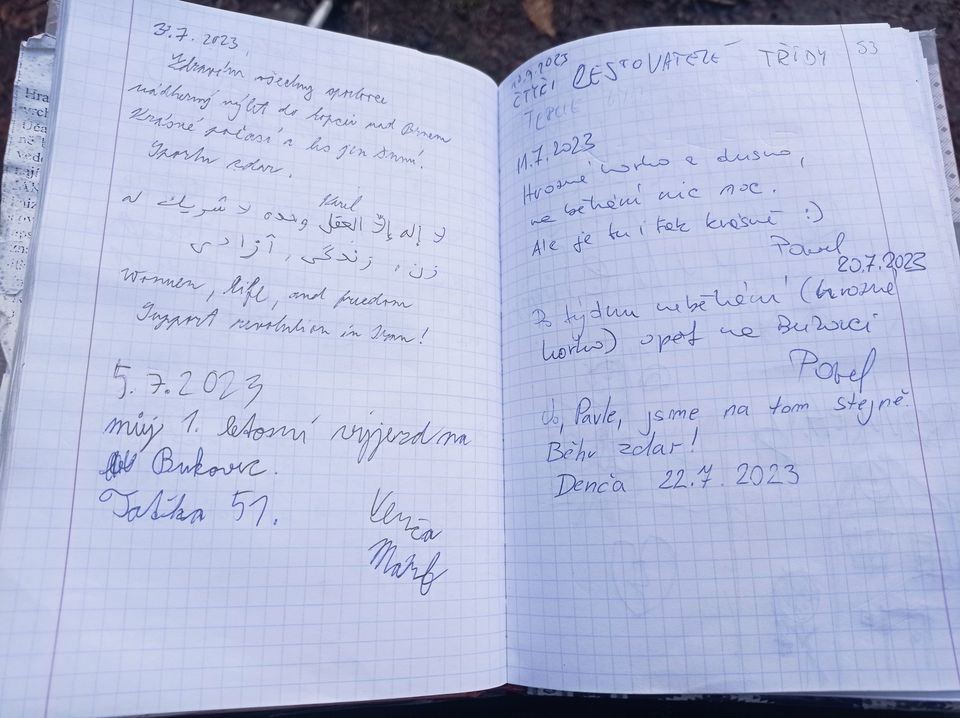 3.7.2023,
Zdravím všechny sportovce
nádherný výlet do kopců nad Brnem
Krásné počasí a les jen šumí.
Sportu zdar.
Karel
لا إله إلا العقل وحده لا شريك له
زن، زندگی، آزادی
women, life, and freedom
Support revolution in Iran!
5.7.2023
můj 1. letošní výjezd na
Bukovec.
Taťka 51.
Verča
53
10.9.2023
ČTYŘI CESTOVATELÉ TŘÍDY
11.7.2023
Hrozné horko a dusno,
na běhání nic moc.
Ale je tu i tak krásně :)
Pavel
20.7.2023
Po týdnu neběhání (hrozné
horko) opět na Bukovci
Pavel
Jo, Pavle, jsme na tom stejně.
Běhu zdar!
Denča 22.7.2023